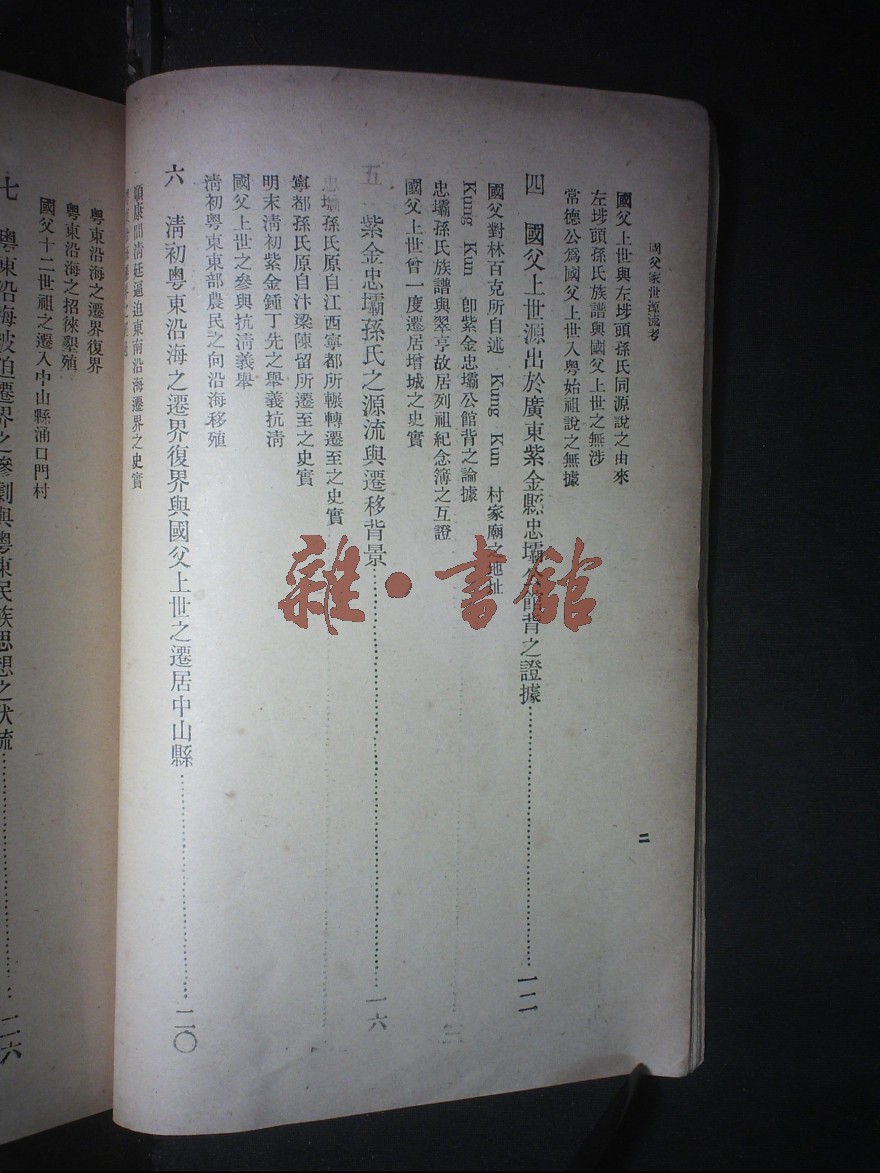 國父家世源流考
二
國父上世與左埗頭孫氏同源說之由來
左埗頭孫氏族譜與國父上世之無涉
常德公為國父上世入粵始祖說之無據
四 國父上世源出於廣東紫金縣忠壩公館背之證據……一二
國父對林百克所自述 Kung Kun 村家廟之地址
Kung Kun 卽紫金忠壩公館背之論據
忠壩孫氏族譜與翠亨故居列祖紀念簿之互證
國父上世曾一度遷居增城之史實
五 紫金忠壩孫氏之源流與遷移背景……一六
忠壩孫氏原自江西寧都所輾轉遷至之史實
寧都孫氏原自汴梁陳留所遷至之史實
明末清初紫金鍾丁先之舉義抗清
國父上世之參與抗清義舉
清初粵東東部農民之向沿海移殖
六 清初粵東沿海之遷界復界與國父上世之遷居中山縣……二〇
順康間清廷逼迫東南沿海遷界之史實
粵東沿海之遷界復界
粵東沿海之招徠墾殖
國父十二世祖之遷入中山縣涌口門村
七 粵東沿海被迫遷界之慘劇與粵東民族思想之伏流……二六
雜·書館